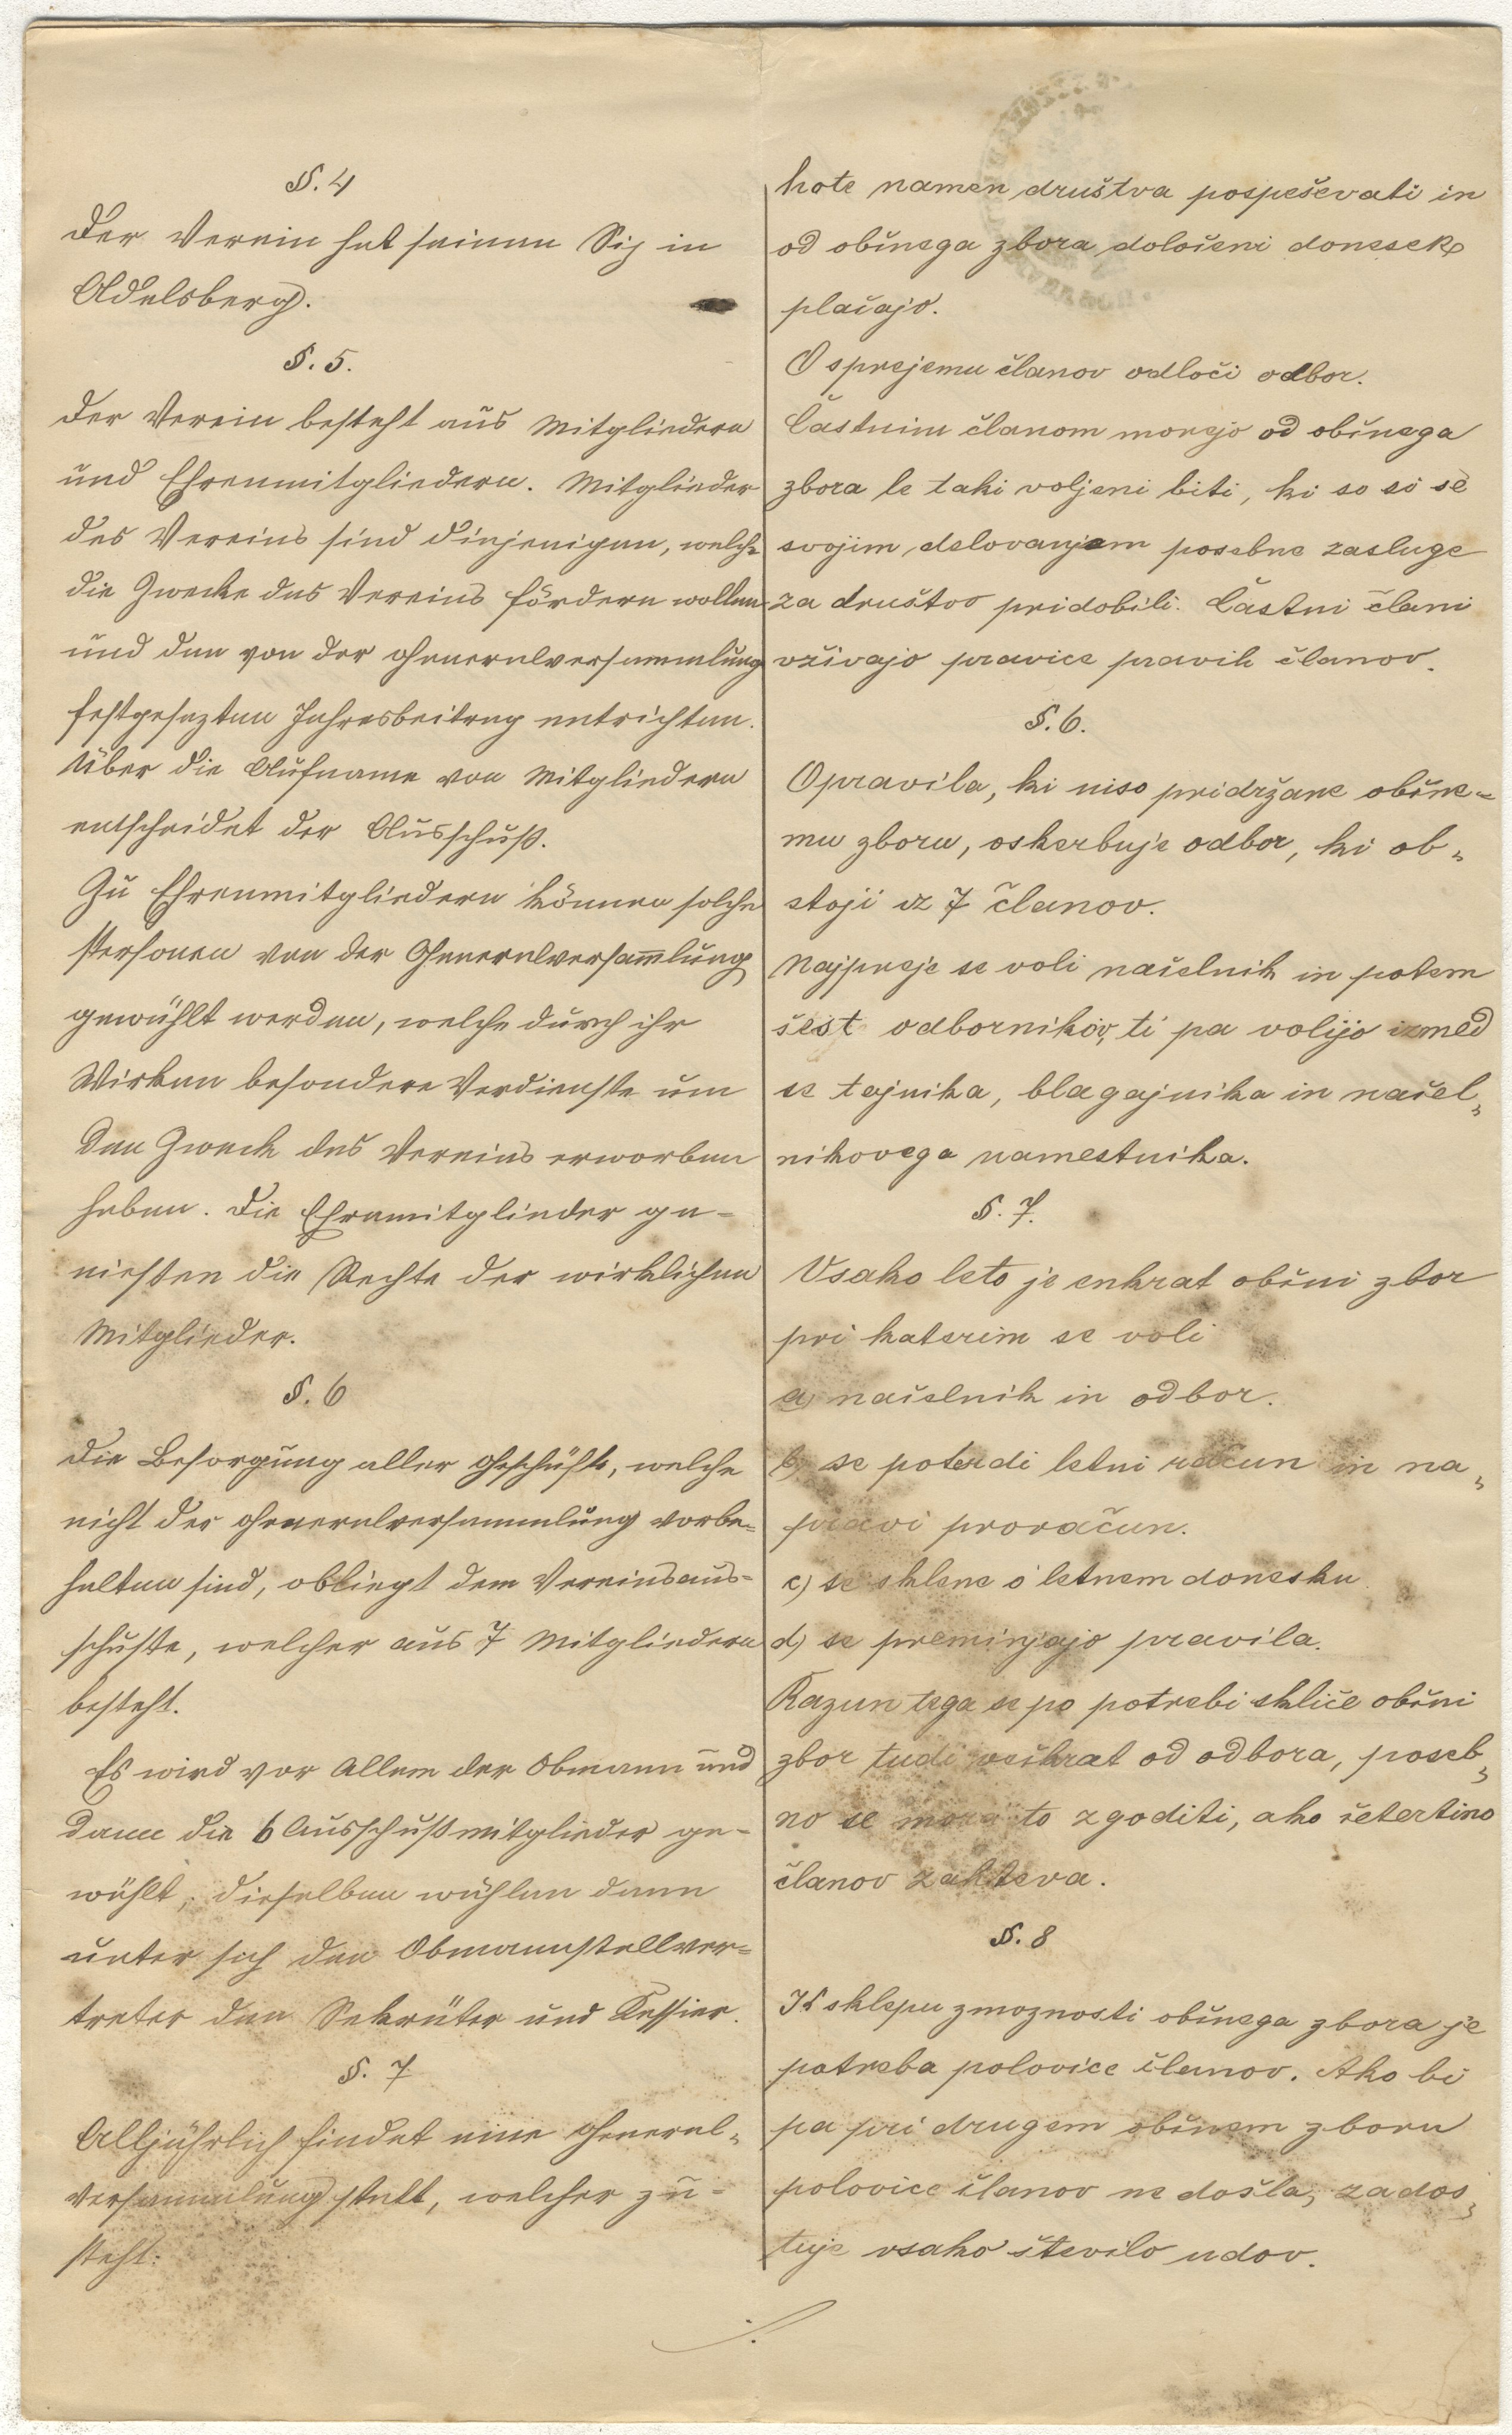 §. 4
Der Verein hat seinen Siz in
Adelsberg.
§. 5.
Der Verein besteht aus Mitgliedern
und Ehrenmitgliedern. Mitglieder
des Vereins sind diejenigen, welche
die Zwecke des Vereins fördern wollen
und den von der Generalversammlung
festgesezten Jahresbeitrag entrichten.
Über die Aufname von Mitgliedern
entscheidet der Ausschuß.
Zu Ehrenmitgliedern können solche
Personen von der Generalversam̅lung
gewählt werden, welche durch ihr
Wirken besondere Verdienste um
den Zweck des Vereins erworben
haben. Die Ehremitglieder ge-
nießen die Rechte der wirklichen
Mitglieder.
§. 6
Die Besorgung aller Geschäfte, welche
nicht der Generalversammlung vorbe-
halten sind, obliegt dem Vereinsaus-
schuße, welcher aus 7 Mitgliedern
besteht.
Es wird vor Allem der Obmann und
dann die 6 Ausschußmitglieder ge-
wählt, dieselben wählen dann
unter sich den Obmannstellver-
treter den Sekräter und Kassier.
§. 7
Alljährlich findet eine General-
versammlung statt, welcher zu-
steht:
hote namen društva pospeševati in
od občnega zbora določeni donesek
plačajo.
O sprejemu članov odloči odbor.
Častnim članom morejo od občnega
zbora le taki voljeni biti, ki so si se
svojim delovanjem posebne zasluge
za društvo pridobili. Častni člani
vživajo pravice pravih članov.
§. 6.
Opravila, ki niso pridržane občne-
mu zboru, oskerbuje odbor, ki ob-
stoji iz 7 članov.
Najpreje se voli načelnik in potem
šest odbornikov, ti pa volijo izmed
se tajnika, blagajnika in načel-
nikovega namestnika.
§. 7.
Vsako leto je enkrat občni zbor
pri katerim se voli
a) načelnik in odbor.
b) se poterdi letni račun in na-
pravi proračun.
c) se sklene o letnem donesku.
d) se preminjajo pravila.
Razun tega se po potrebi skliče občni
zbor tudi večkrat od odbora, poseb-
no se mora to zgoditi, ako četertino
članov zahteva.
§. 8
K sklepu zmoznosti občnega zbora je
potreba polovice članov. Ako bi
pa pri drugem občnem zboru
polovice članov ne došla, zados-
tuje vsako število udov.